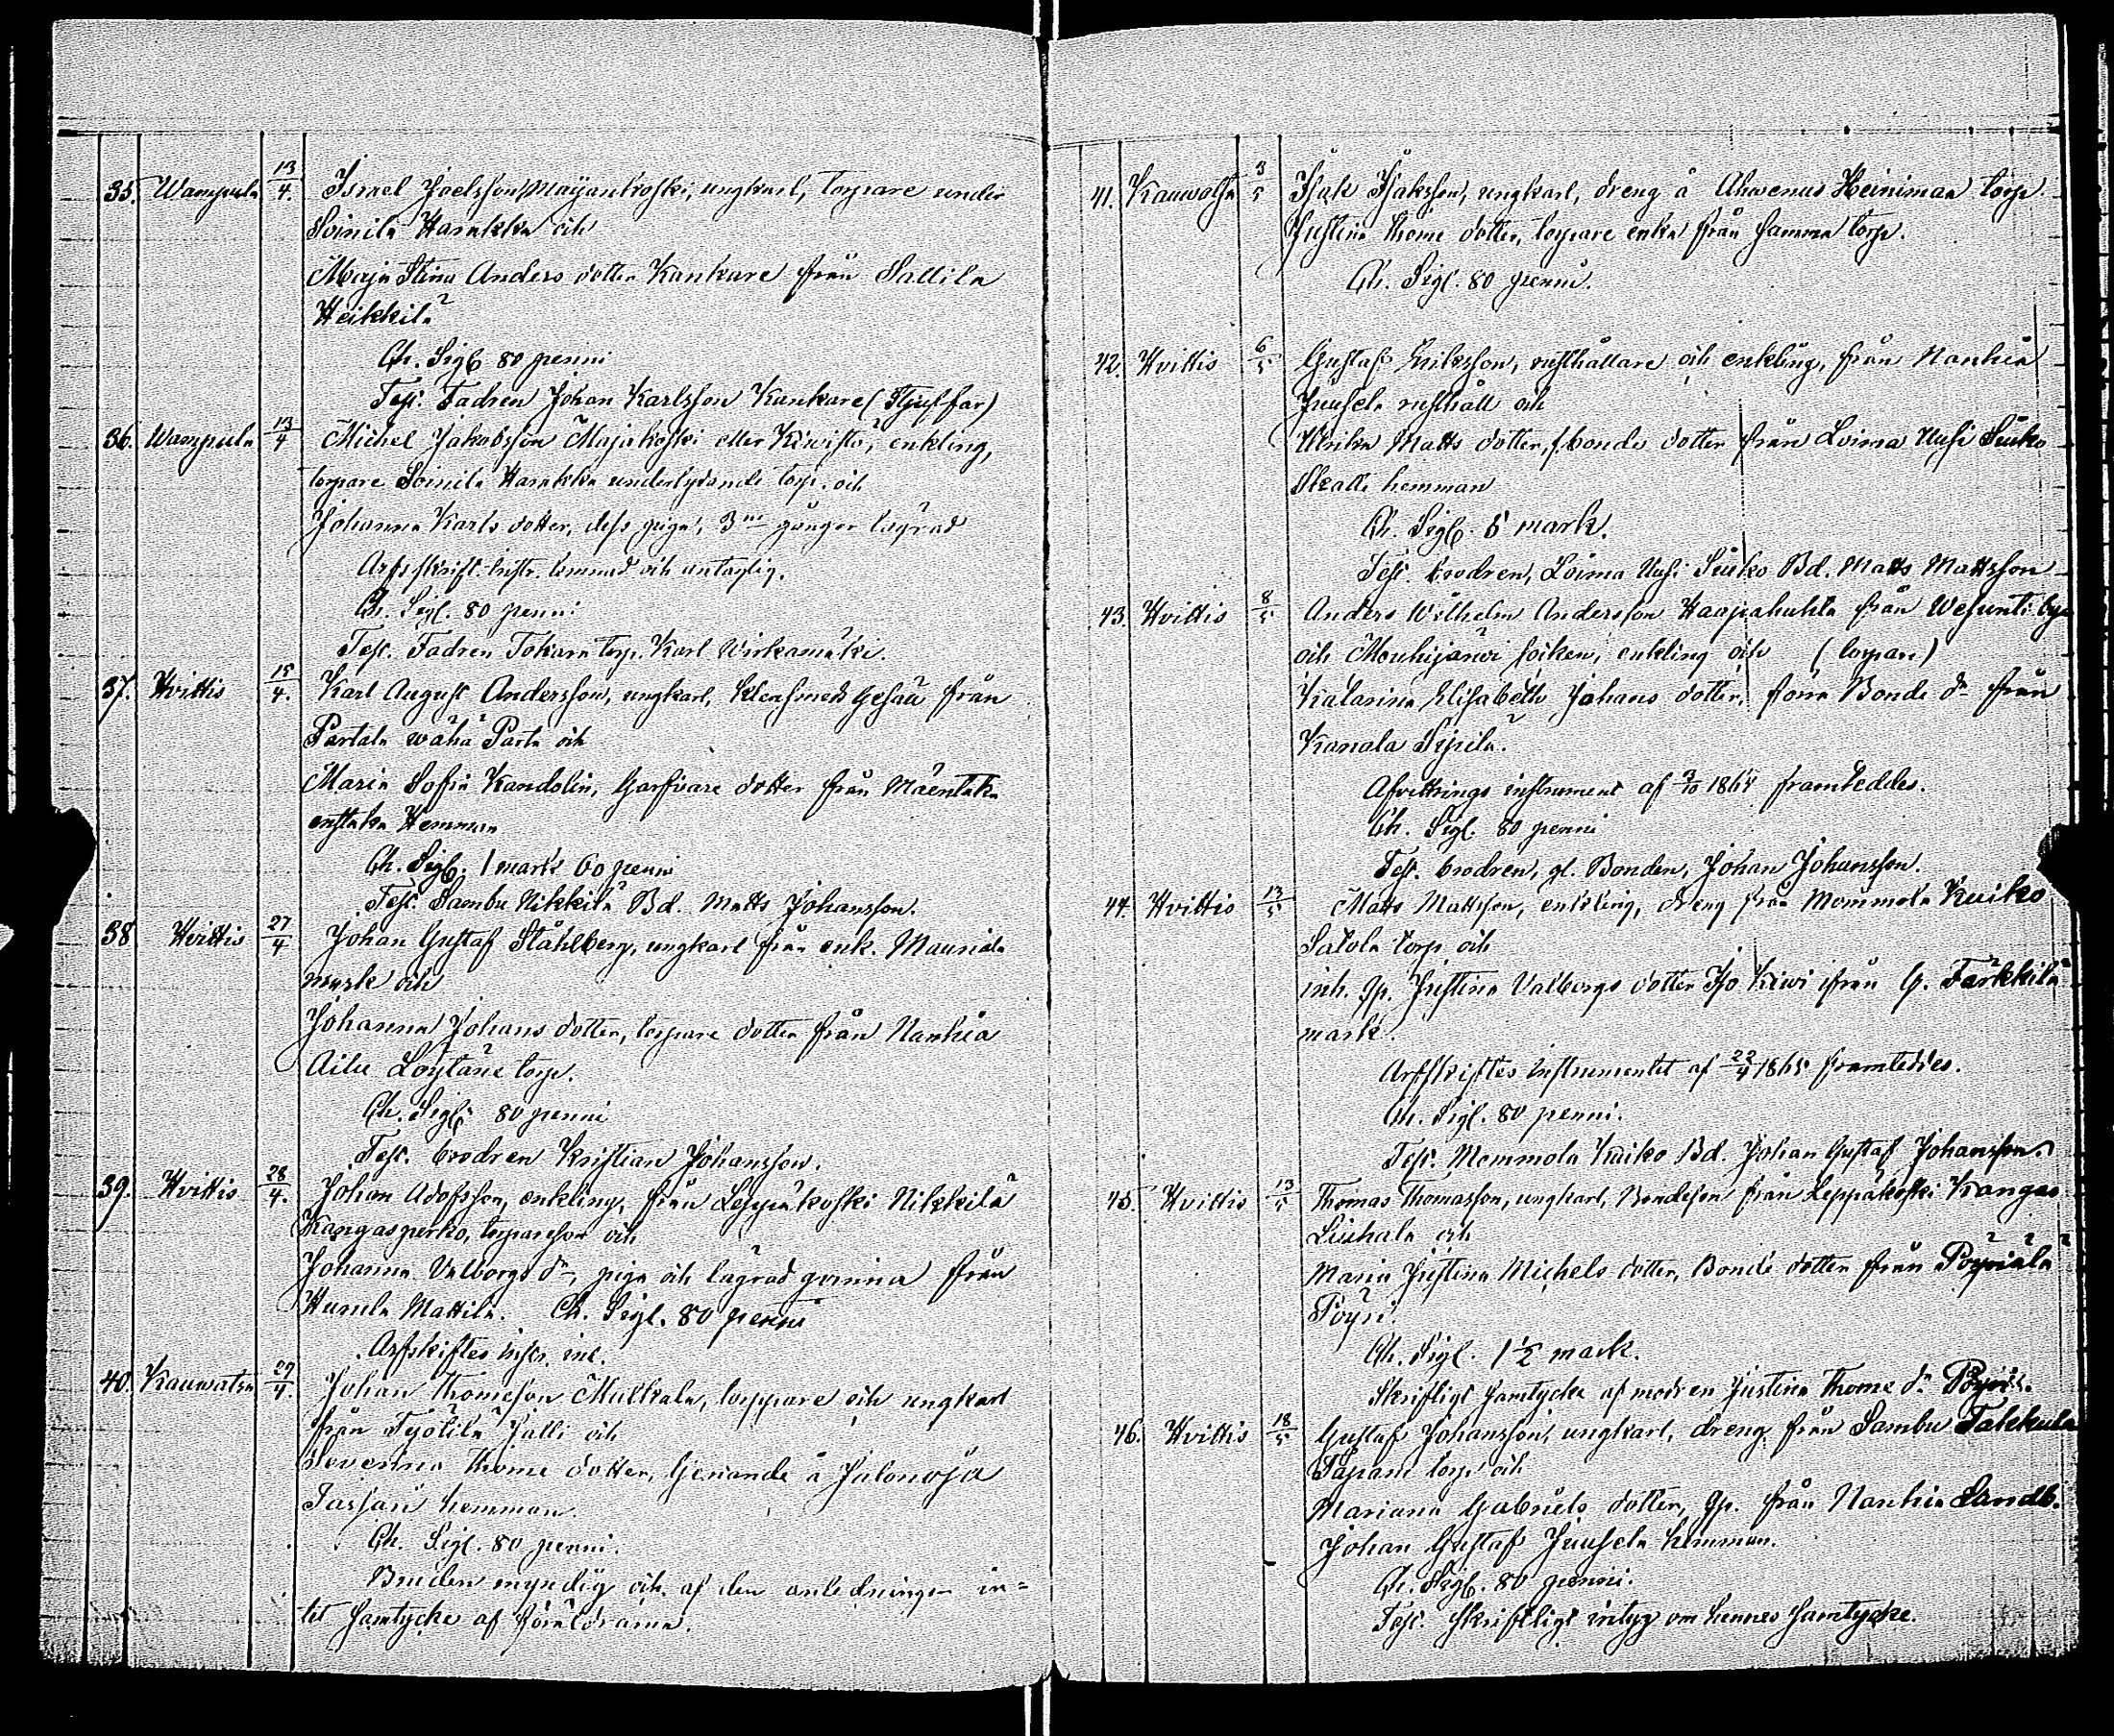 35. Wampula 13/4. Israel Joelsson Maijankoski, ungkarl, torpare under
Soinila Harakka och
Maja Stina Anders dotter Kankare från Sallila
Heikkilä
Ch. Sigl. 80 penni
Test. Fadren Johan Karlsson Kankare (Stjuffar)
36. Wampula 13/4 Michel Jakobsson Majakoski eller Kiwistö, enkling,
torpare Soinila Harakka underlydande torp. och
Johanna Karls dotter, dess piga, 3ne gånger lägrad
Arfsskift. instr. lemnad och antaglig.
Ch. Sigl. 80 penni
Test. Fadren Tokara torp. Karl Wirkamäki.
37. Hvittis 15/4. Karl August Andersson, ungkarl, Klensmeds Gesäll från
Partala wähä Parta och
Maria Sofia Kandolin, Garfvare dotter från Mäentaka
enstaka Hemman
Ch. Sigl. 1 mark 60 penni
Test. Sambu Nikkilä Bd. Matts Johansson.
38 Hvittis 27/4 Johan Gustaf Ståhlberg, ungkarl från enk. Mauriala
mark och
Johanna Johans dotter, torpare dotter från Nanhia
Löytäne torp.
Ch. Sigl. 80 penni
Test. brodren Kristian Johansson.
39. Hvittis 28/4. Johan Adofsson, enkling, från Leppäkoski Nikkilä
Kangasperko, torpareson och
Johanna Valborgs dr, piga och lägrad qvinna från
Hurula Mattila. Ch. Sigl. 80 penni
Arfskiftes instr. inl.
40. Kauwatsa 29/4. Johan Thomeson Mulkala, torppare och ungkarl
från Jalli och
Severina Thome dotter, tjenande å Jalonoja
Passari hemman.
Ch. Sigl. 80 penni.
Bruden myndig och af den anledningen in=
tet samtycke af föräldrarna.
41. Kauwatsa 3/5 Isak Isaksson, ungkarl, dreng å Ahwenus Heiniman torp.
Justina Thome dotter, torpare enka från samma torp.
Ch. Sigl. 80 penni.
42. Hvittis 6/5 Gustaf Eriksson, rusthållare och enkling, från Nanhia
Juusela rusthåll och
Ulrika Matts dotter, f. bonde dotter från Loima Uusi Seuko
Skatte hemman
Ch. Sigl. 5 mark.
Test. brodren, Loima Uusi Seuko Bd. Matts Mattsson
43. Hvittis 8/5 Anders Wilhelm Andersson Haapahuhta från Wesunti by
och Mouhijärwi socken, enkling och (torpare)
Katarina Elisabeth Johans dotter, förra Bonde dr från
Karhala Sepilä.
Afvittrings instrument af 3/10 1864 framteddes.
Ch. Sigl. 80 penni
Test. brodren, gl. Bonden, Johan Johansson.
44. Hvittis 13/5 Matts Mattsson, enkling, dreng från Mommola Kuiko
Satola torp och
inh. qp. Justina Valborgs dotter Iso Kiwi från G. Färkkilä
mark.
Arfskiftes instrumentet af 22/4 1865 framteddes.
Ch. Sigl. 80 penni.
Test. Mommola Kuiko Bd. Johan Gustaf Johansson.
45. Hvittis 13/5 Thomas Thomasson, ungkarl, Bondeson från Leppäkoski Kangas
Liuhala och
Maria Justina Michels dotter, Bonde dotter från Pöyriälä
Pöyri.
Ch. Sigl. 1½ mark.
Skriftligt samtycke af modren Justina Thome dr Pöyri.
46. Hvittis 18/5 Gustaf Johansson, ungkarl, dreng från Sambu Takkula
Papani torp och
Mariana Gabriels dotter, qp. från Nanhia Landb.
Johan Gustaf Juusela hemman.
Ch. Sigl. 80 penni.
Test. skriftligt intyg om hennes samtycke.